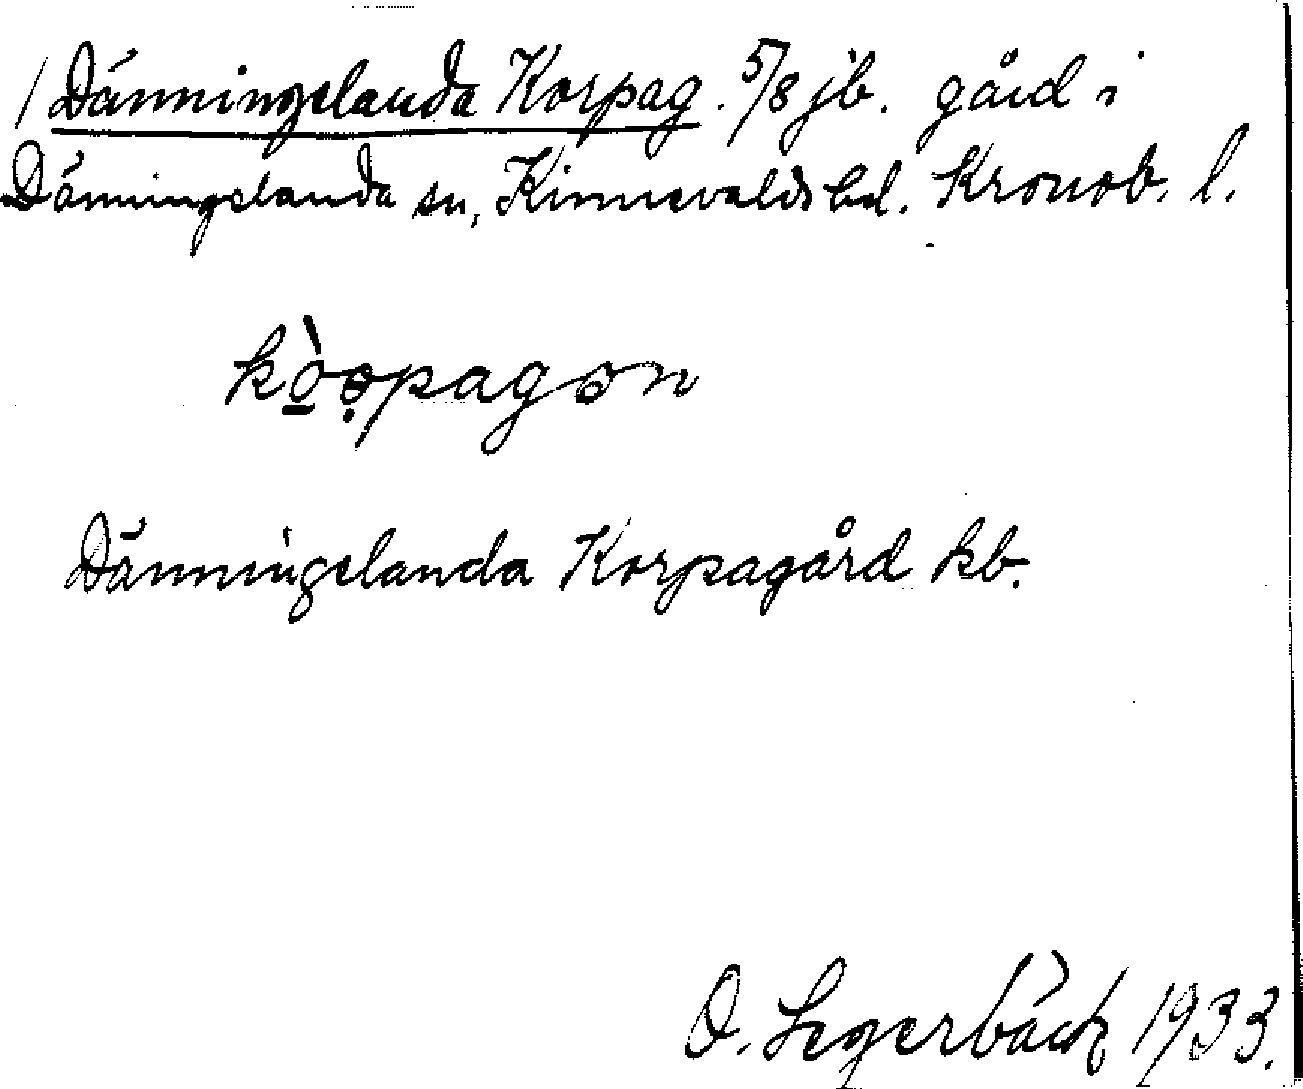 / Dänningelanda Korpag. 5/8 jb. gård i
Dänningelanda sn, Kinnevalds hd. Kronob. l.
kòopagon
Dänningelanda Korpagård kb.
O. Segerbäck 1933.